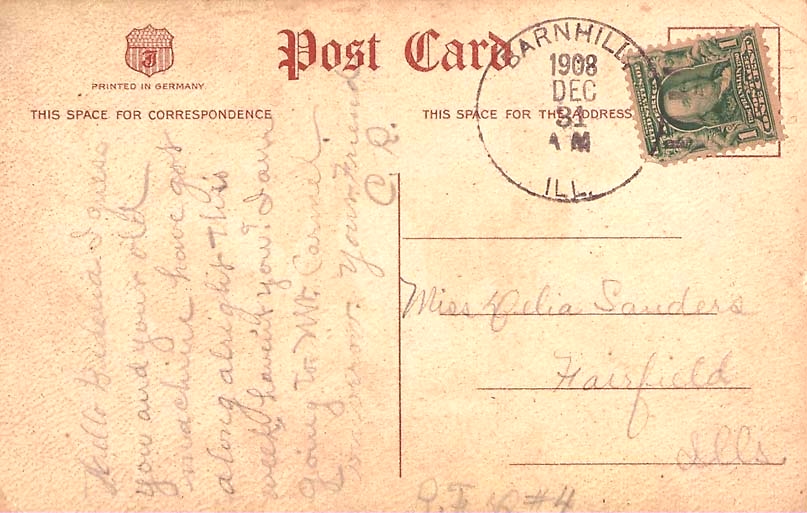 Post Card
PRINTED IN GERMANY
THIS SPACE FOR CORRESPONDENCE
THIS SPACE FOR THE ADDRESS
BARNHILL
1908
DEC
31
A M
ILL.
Hello I guess
you and your old
machine have got
along alright this
week haven't you? I am
going to Mt. Carmel
tomorrow. Your Friend
C. R.
Miss Delia Sanders
Fairfield
Ills
R. F. D #4